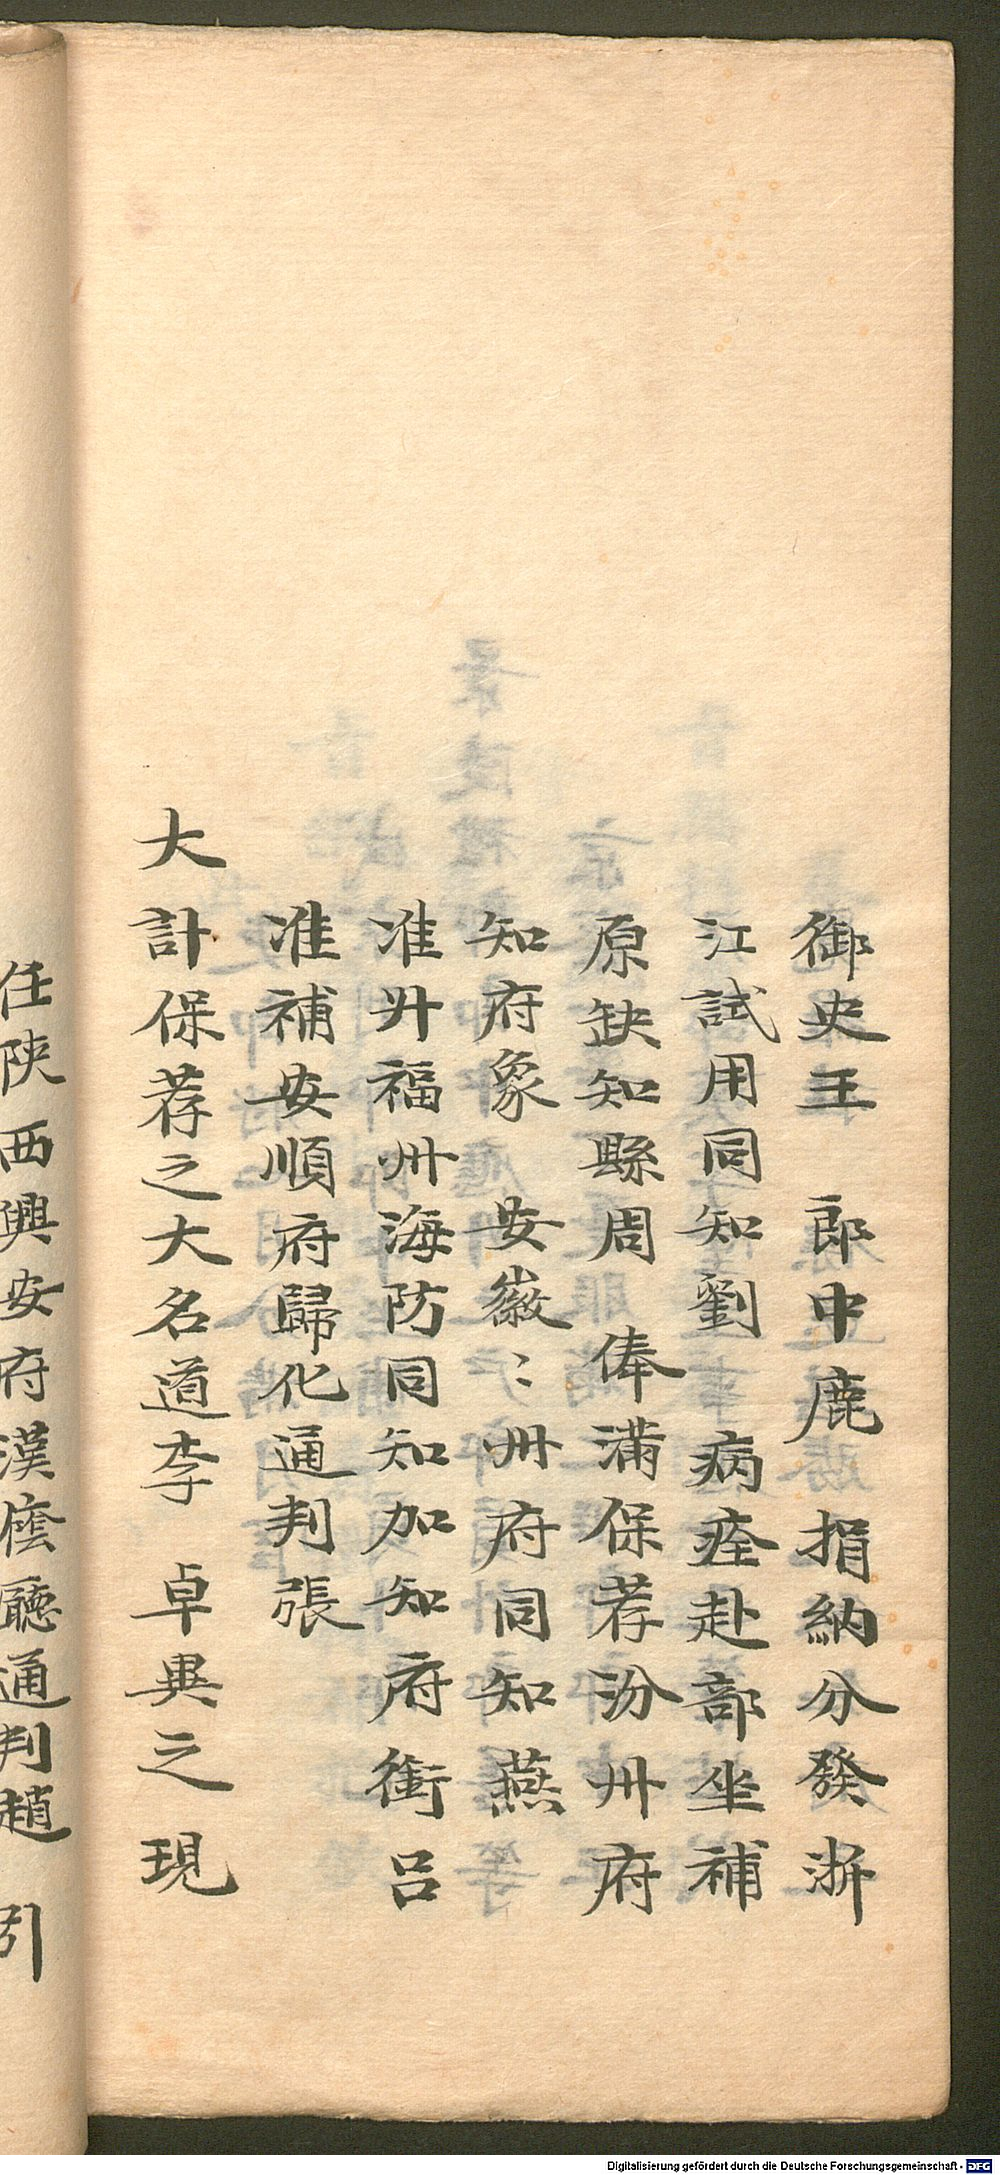 御史王　郎中鹿　捐納分發浙
江試用同知劉　病痊赴部坐補
原缺知縣周　俸滿保荐汾州府
知府象　安徽〻州府同知燕
准升福州海防同知加知府銜呂
准補安順府歸化通判張
大計保荐之大名道李　卓異之現
任陝西興安府漢廕廳通判趙　引
Digitalisierung gefördert durch die Deutsche Forschungsgemeinschaft - DFG